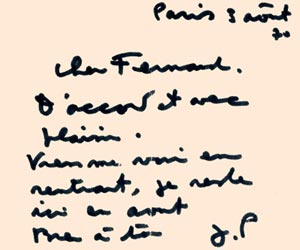 Paris 3 août
70
Cher Fernand.
D'accord et avec
plaisir.
Viens me voir en
rentrant, je reste
ici en août
à toi J.P